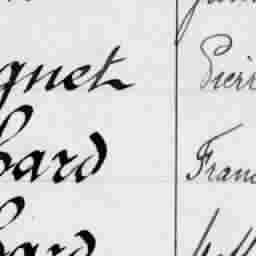 gnet Pierr
bard Franc
bard